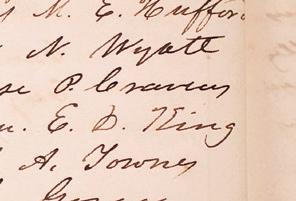 M. E. Hufford
N. Wyatt
P. Cravens
E. D. King
A. Townes